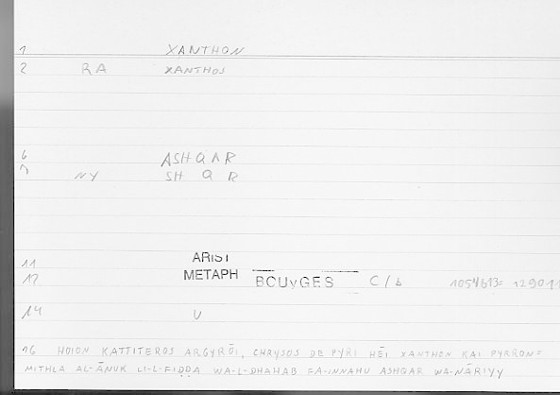 1 XANTHON
2 RA XANTHOS
6 ASHQAR
7 NY SH Q R
11 ARIST
12 METAPH BCUvGES C/b 1054b13= 1290
14 U
16 HOION KATTITEROS ARGYRŌI, CHRYSOS DE PYRI HĒI XANTHON KAI PYRRON=
MITHLA AL-ĀNUK LI-L-FIḌḌA WA-L-DHAHAB FA-INNAHU ASHQAR WA-NĀRIYY